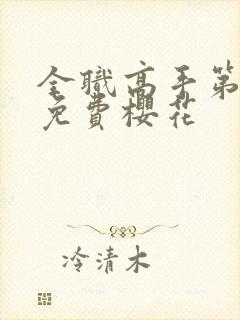 全職高手第
免費櫻花
冷清木